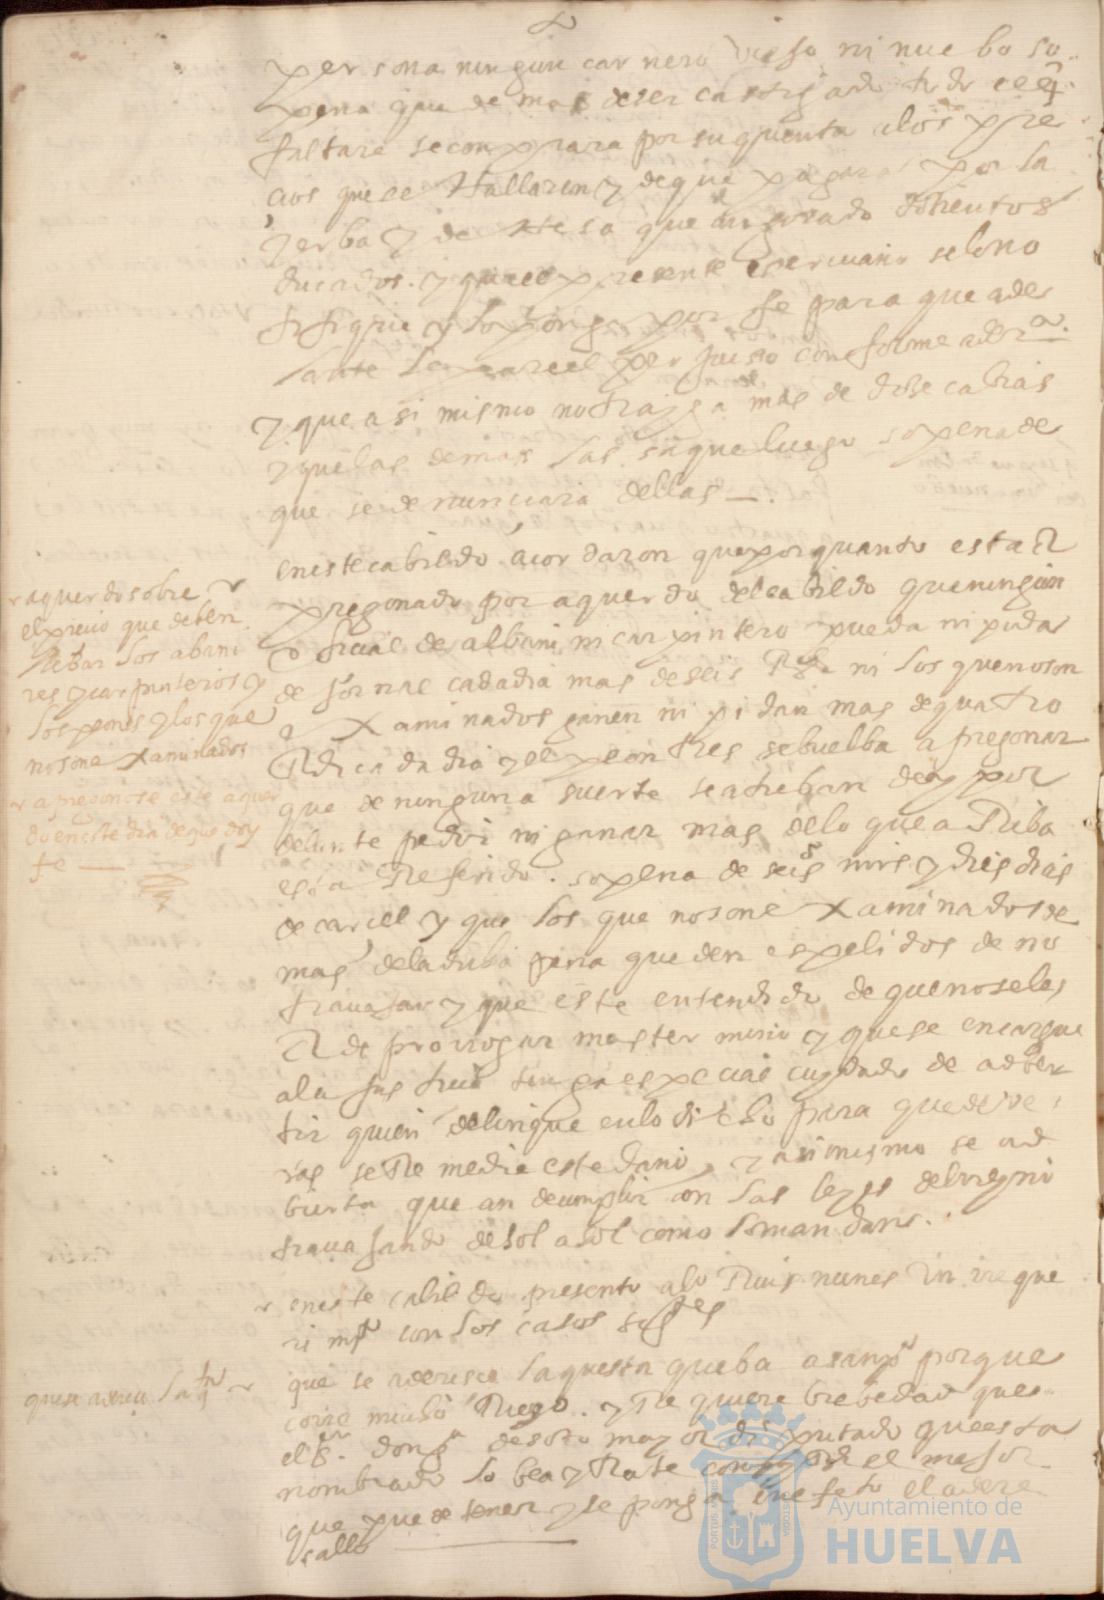 persona ningun carnero viejo ni nuebo so
pena que de mas deser castigado todo el q
faltare se conprara por su quenta alos pre
cios que se Hallaren y de que pagara por la
yerba y dehesa que an gosado dosientos
ducados. y que el presente escriuano selono
tifique y lo ponga por fe para que ade
lante le pare el perjuisio conforme a dro.
y que asi mismo no traiga mas de dose cabras
y que las demas las saque luego so pena de
que se denunciara dellas —.
en este cabildo acordaron que por quanto esta
pregonado por aquerdo del cabildo que ningun
ofisial de albani ni carpintero pueda ni pida
de jornal cada dia mas de seis Rs. ni los que no son
examinados ganen ni pidan mas de quatro
Rs. cada dia y el peon tres se buelba a pregonar
que de ninguna suerte se atreban de oy por
delante pedir ni ganar mas delo que aRiba
esta Referido. so pena de seis mrs y dies dias
de carcel y que los que no son examinados de
mas dela dicha pena queden espelidos de no
trauajar y que este entendido de que no seles
a de prorrogar mas termino y que se encargue
ala justicia tenga especial cuydado de adber
tir quien delinque en lo dicho para que de be
ras se Remedie este dano, y asimismo se ad
bierta que an de cumplir con las leyes del reyno
trauajando de sol a sol como lo mandan.
en este cabildo presento alo Ruis nunes un reque
rimto con los casos sigtes
que se aderese la questa que ba a sanpo porque
corre mucho Riego. y Requiere brebedad que
el sr. don ga de soto mayor diputado que esta
nombrado lo bea y trate con el mejor
que puede tener y se ponga en efeto el adere
sallo
aquerdo sobre
el presio que deben
llebar los albani
res y carpinteros y
los peones y los que
no son examinados
apregonose este aquer
do en este dia de que doy
fe —
que se aderese la qta
PORTUS MARIS
CUSTODIA
Ayuntamiento de
HUELVA